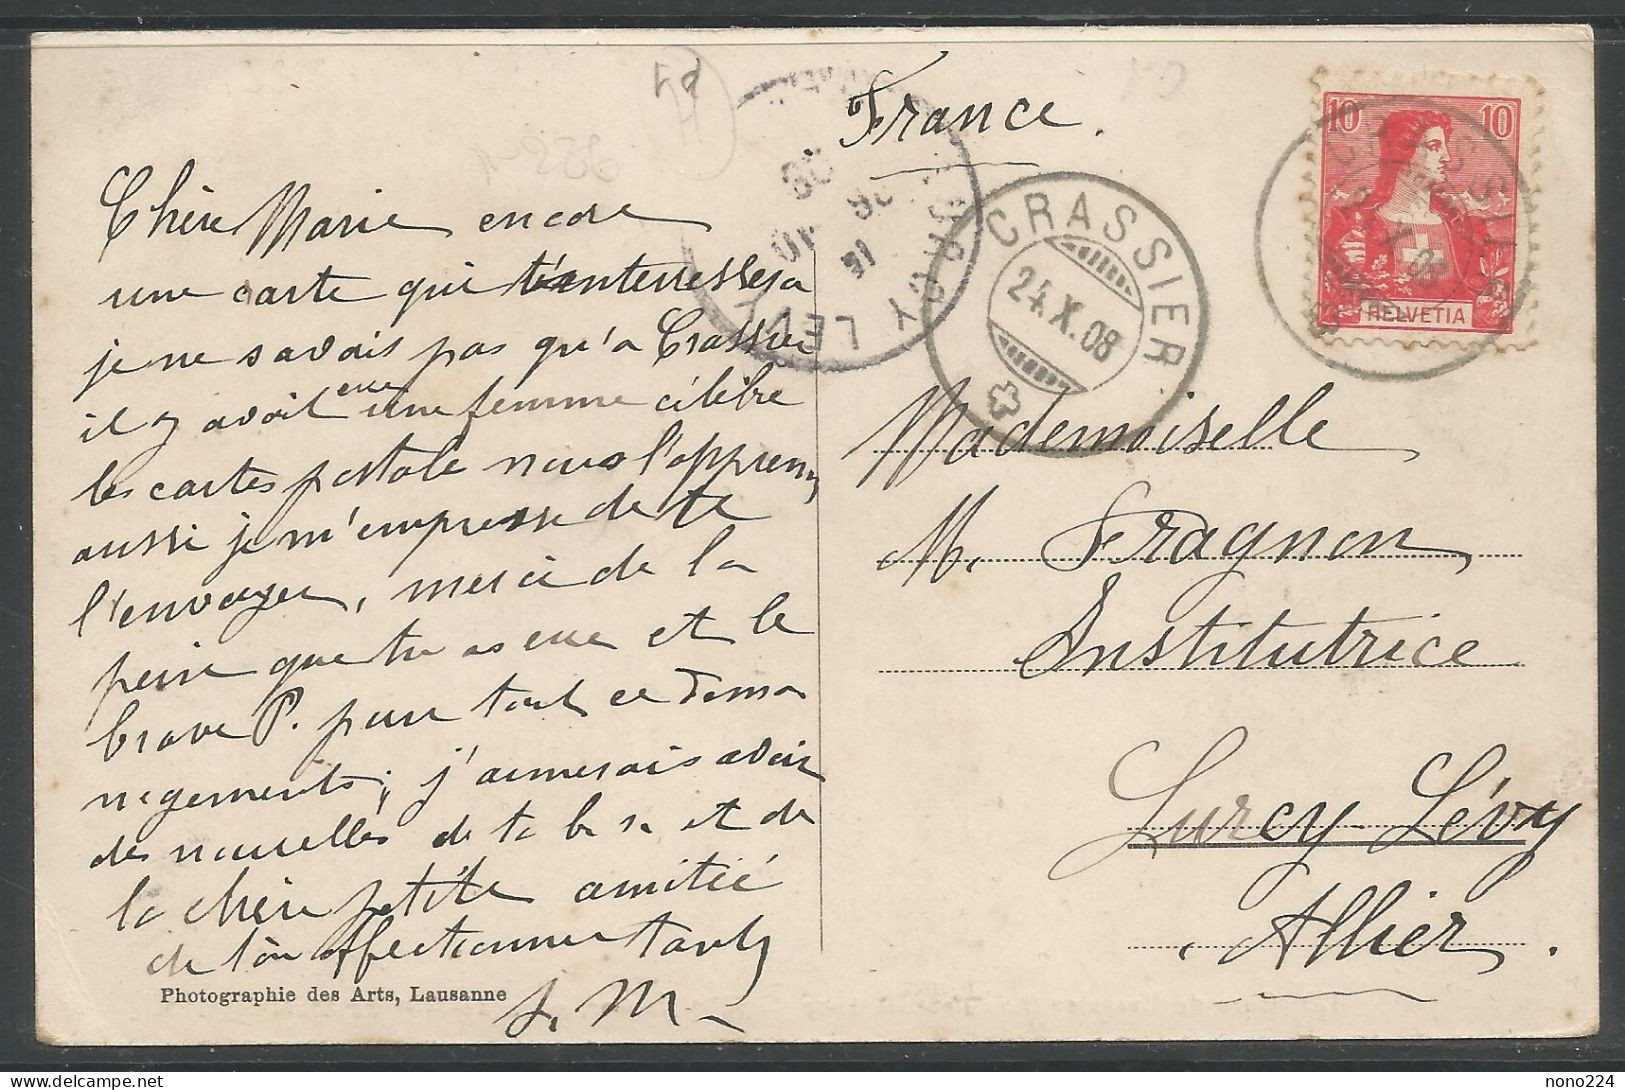 France.
Chère Marie encore
une carte que t'interressera
je ne savais pas qu'a Crassier
il y avait eue une femme célèbre
les cartes postale nous l'appren,
aussi je m'empresse de te
l'envoyer, merci de la
peine que tu as eue et le
brave P. pour tout ce dema
nagements; j'aimerais avoir
des nouvelles de ta et de
la chère petite amitié
de ton affectionnee
J. M.
Photographie des Arts, Lausanne
CRASSIER
24.X.08
LURCY LEVY
10 10
HELVETIA
Mademoiselle
M. Fragnon
Institutrice
Lurcy-Lévy
Allier.
nono224